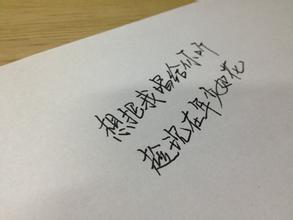 想把我唱给你听
趁现在年少如花